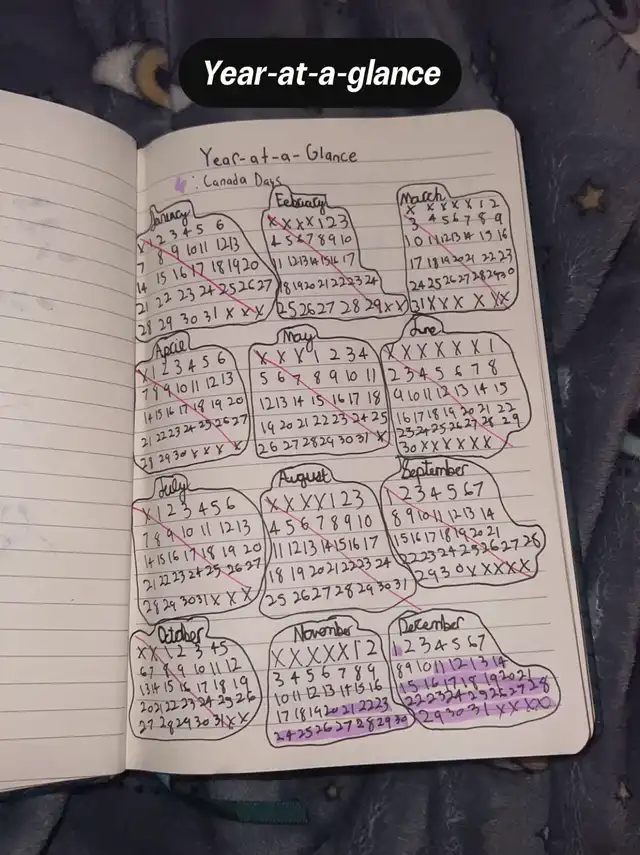 Year-at-a-glance
Year-at-a-Glance
: Canada Days
January
X 1 2 3 4 5 6
7 8 9 10 11 12 13
14 15 16 17 18 19 20
21 22 23 24 25 26 27
28 29 30 31 X X X
February
X X X X 1 2 3
4 5 6 7 8 9 10
11 12 13 14 15 16 17
18 19 20 21 22 23 24
25 26 27 28 29 X X
March
X X X X X 1 2
3 4 5 6 7 8 9
10 11 12 13 14 15 16
17 18 19 20 21 22 23
24 25 26 27 28 29 30
31 X X X X X X
April
X 1 2 3 4 5 6
7 8 9 10 11 12 13
14 15 16 17 18 19 20
21 22 23 24 25 26 27
28 29 30 X X X X
May
X X X 1 2 3 4
5 6 7 8 9 10 11
12 13 14 15 16 17 18
19 20 21 22 23 24 25
26 27 28 29 30 31 X
June
X X X X X X 1
2 3 4 5 6 7 8
9 10 11 12 13 14 15
16 17 18 19 20 21 22
23 24 25 26 27 28 29
30 X X X X X X
July
X 1 2 3 4 5 6
7 8 9 10 11 12 13
14 15 16 17 18 19 20
21 22 23 24 25 26 27
28 29 30 31 X X X
August
X X X X 1 2 3
4 5 6 7 8 9 10
11 12 13 14 15 16 17
18 19 20 21 22 23 24
25 26 27 28 29 30 31
September
1 2 3 4 5 6 7
8 9 10 11 12 13 14
15 16 17 18 19 20 21
22 23 24 25 26 27 28
29 30 X X X X X
October
X X 1 2 3 4 5
6 7 8 9 10 11 12
13 14 15 16 17 18 19
20 21 22 23 24 25 26
27 28 29 30 31 X X
November
X X X X X 1 2
3 4 5 6 7 8 9
10 11 12 13 14 15 16
17 18 19 20 21 22 23
24 25 26 27 28 29 30
December
1 2 3 4 5 6 7
8 9 10 11 12 13 14
15 16 17 18 19 20 21
22 23 24 25 26 27 28
29 30 31 X X X X